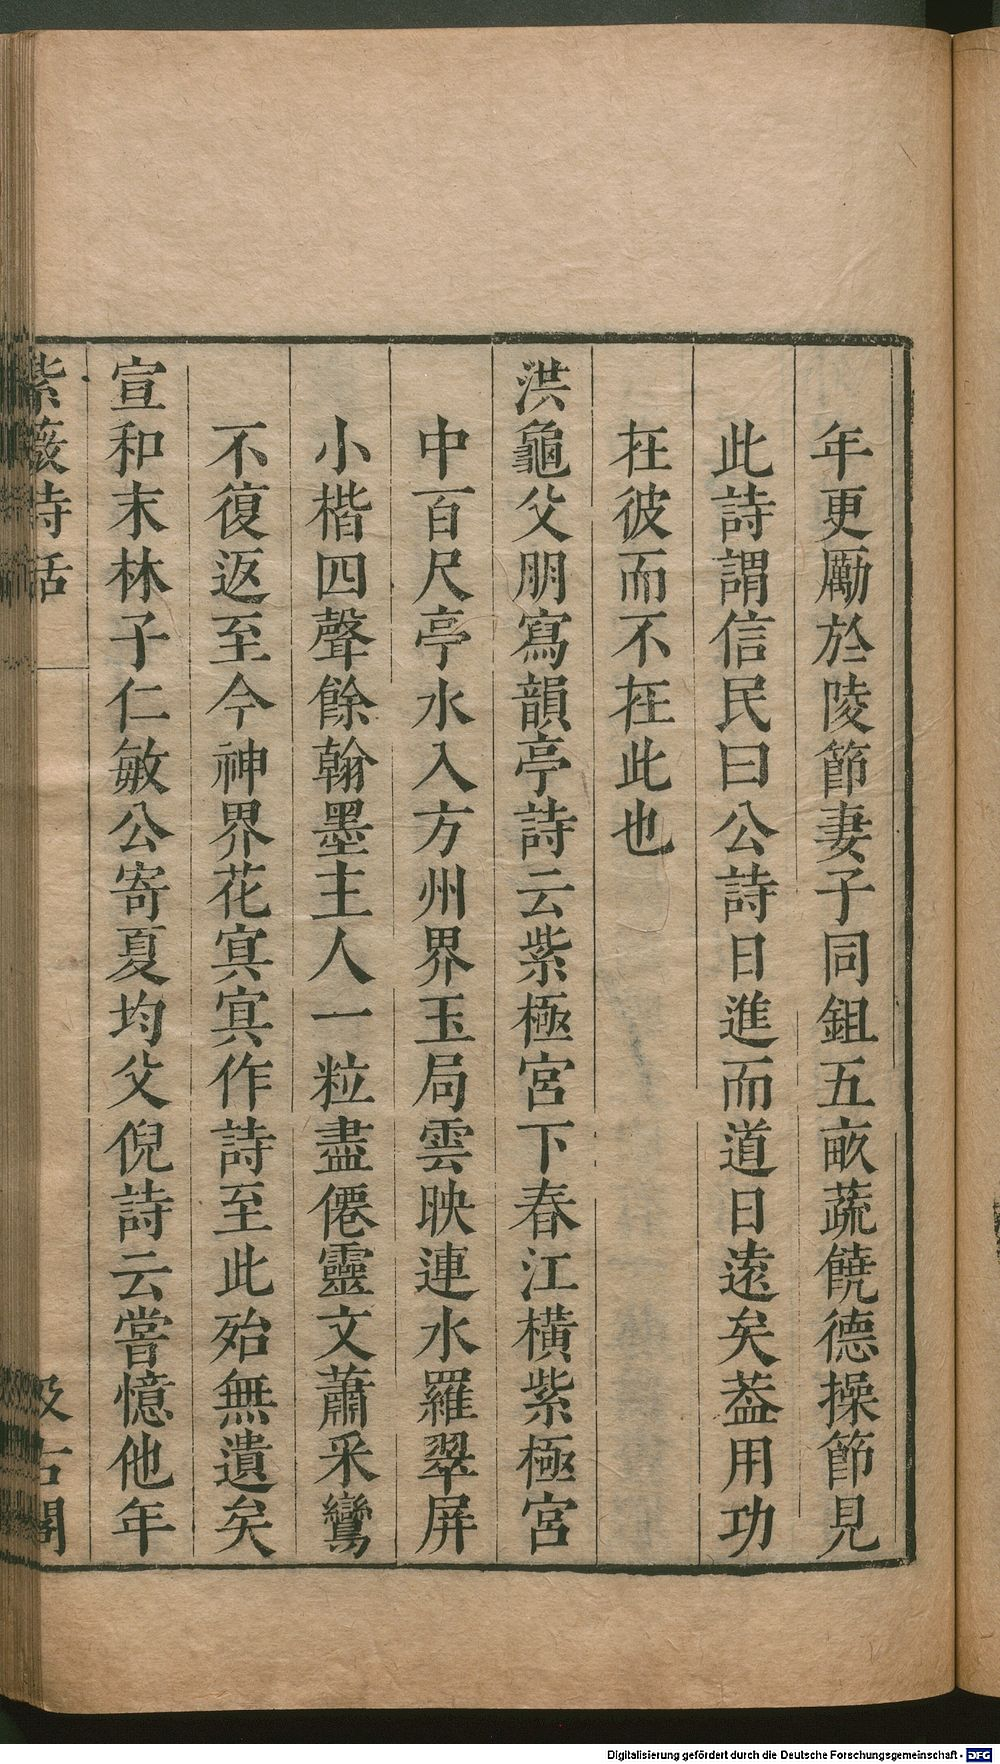 年更勵於陵節妻子同鉏五畝蔬饒德操節見
此詩謂信民曰公詩日進而道日遠矣葢用功
在彼而不在此也
洪龜父朋寫韻亭詩云紫極宮下春江橫紫極宮
中百尺亭水入方州界玉局雲映連水羅翠屏
小楷四聲餘翰墨主人一粒盡僊靈文蕭采鸞
不復返至今神界花㝠㝠作詩至此殆無遺矣
宣和末林子仁敏公寄夏均父倪詩云嘗憶他年
紫薇詩話
汲古閣
Digitalisierung gefördert durch die Deutsche Forschungsgemeinschaft - DFG